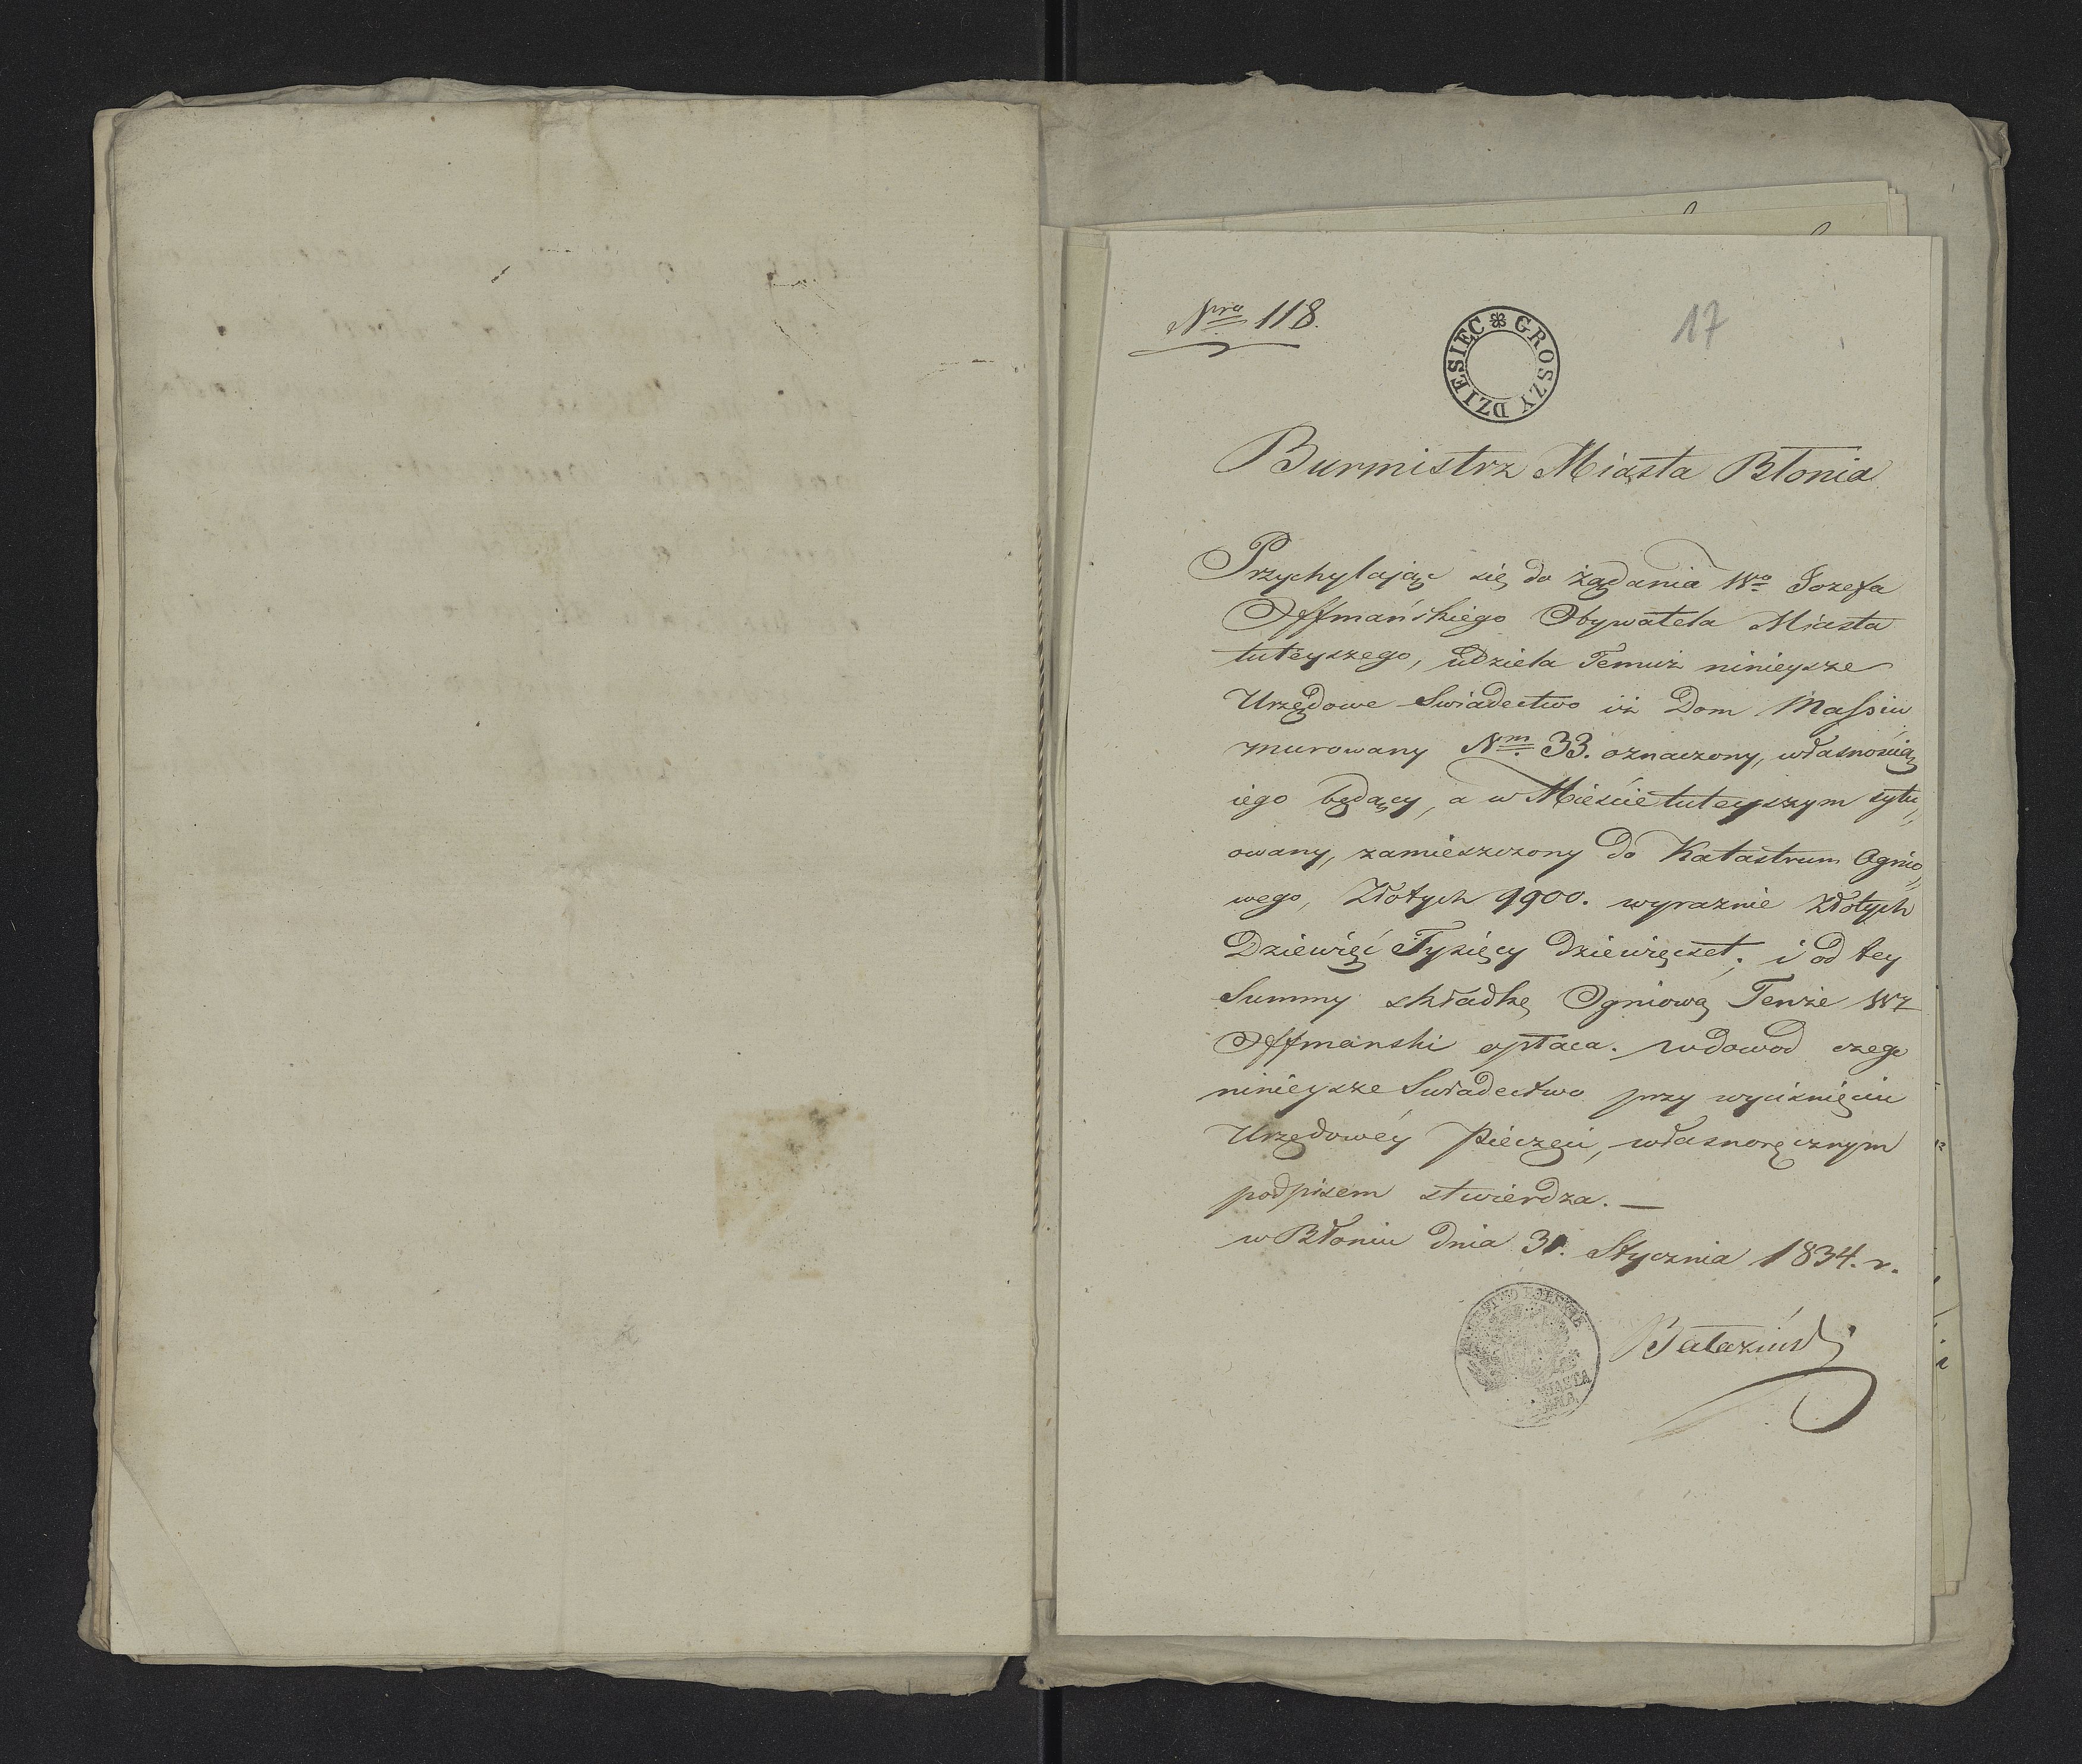 Nro 118.
GROSZY DZIESIĘC
17
Burmistrz Miasta Błonia
Przychylaiąc się do żądania Wo Jozefa
Offmańskiego Obywatela Miasta
tuteyszego, udziela Temuż ninieysze
Urzędowe Swiadectwo iż Dom Massiw
murowany Nm 33. oznaczony, własnością
iego będący, a w Mieście tuteyszym sytu„
owany, zamieszczony do Katastrum Ognio„
wego, Złotych 9900. wyraznie Złotych
Dziewięć Tysięcy Dziewięćset; i od tey
Summy składkę Ogniową Tenże WJ
Offmanski opłaca. wdowod czego
ninieysze Swiadectwo przy wyciśnięciu
Urzędowéy Pieczęci, własnoręcznym
podpisem stwierdza. —
w Błoniu Dnia 31. Stycznia 1834. r.
MIASTA